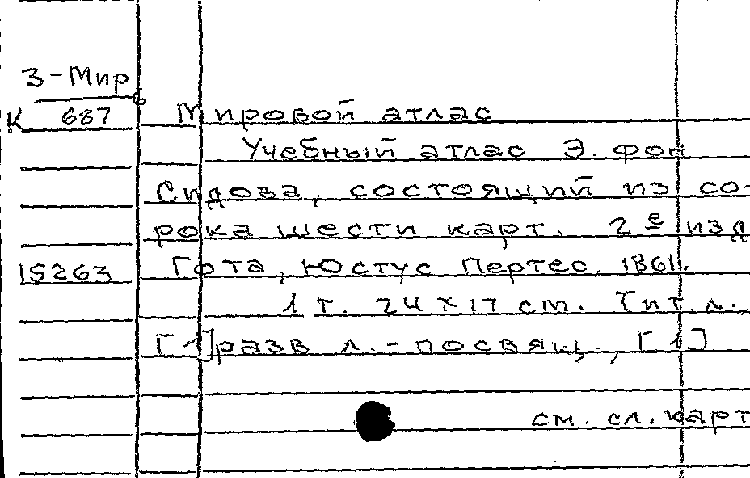 3-Мир
К 687 Мировой атлас
Учебный атлас Э. фон
Сидова, состоящий из со-
рока шести карт. 2е изд
15263 Гота, Юстус Пертес, 1861.
1 т. 24 x 17 см. Тит. л.
[1] разв л. - посвящ., [1]
см. сл. карт